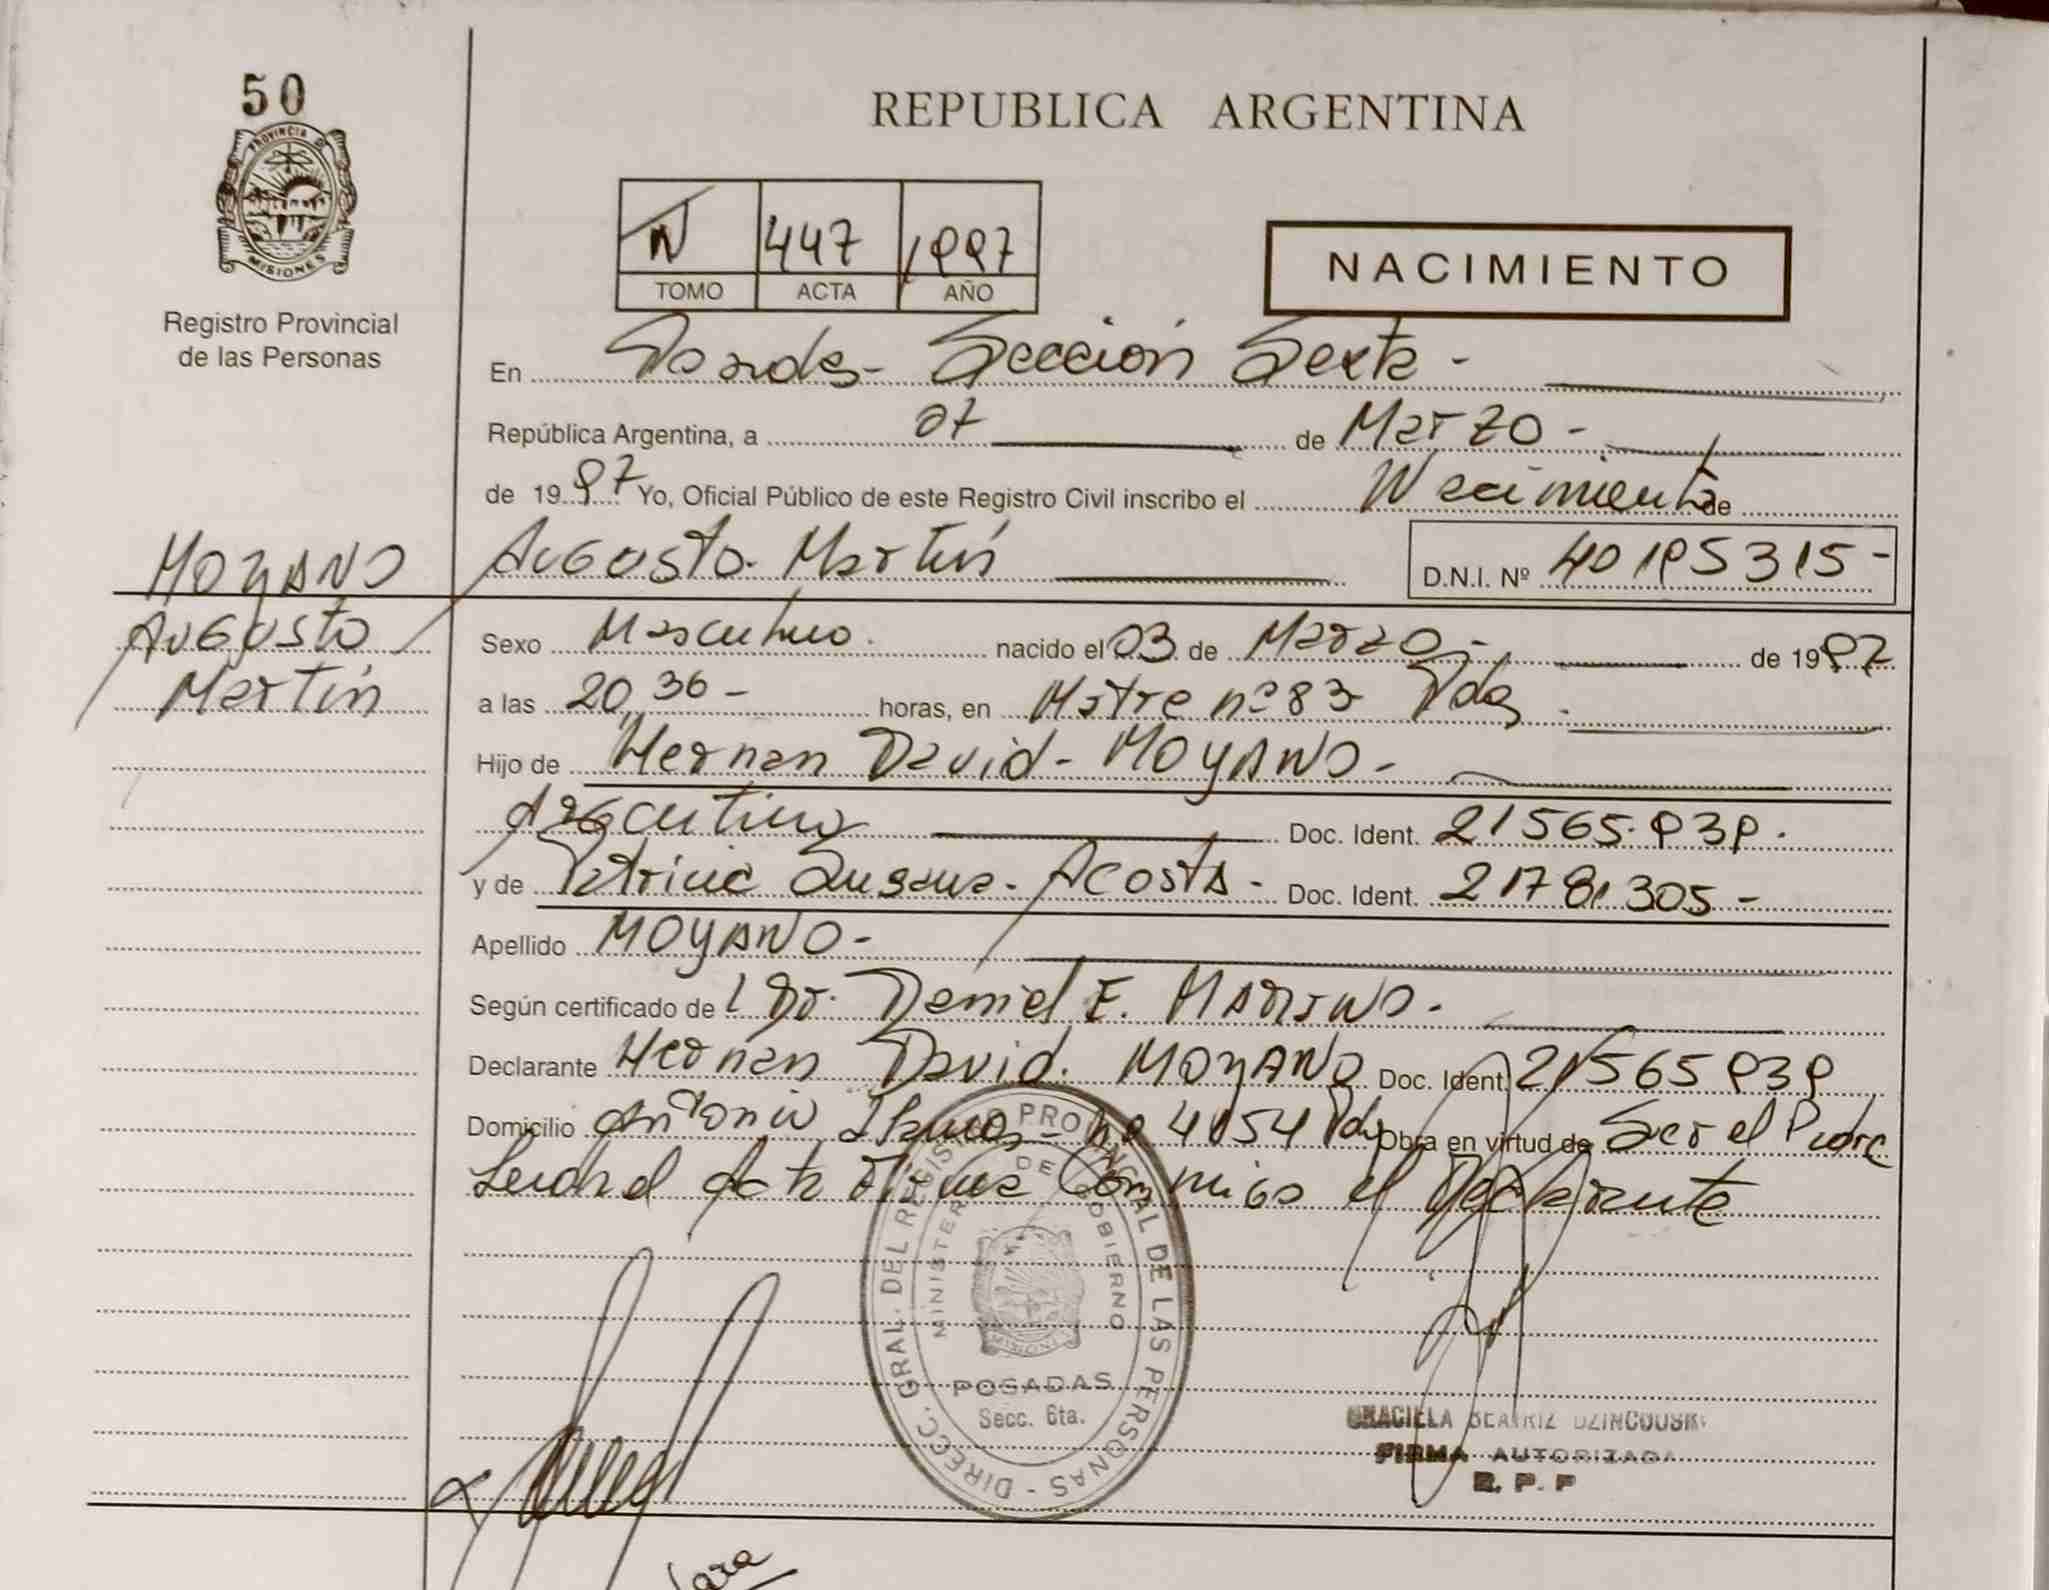 50
PROVINCIA D
MISIONES
Registro Provincial
de las Personas
REPUBLICA ARGENTINA
447 1997
TOMO ACTA AÑO
NACIMIENTO
En Posadas - Sección Sexta -
República Argentina, a 07 de Marzo -
de 1997 Yo, Oficial Público de este Registro Civil inscribo el Nacimiento de
MOYANO
Augusto
Martín
Augusto Martín D.N.I. Nº 40195315-
Sexo Masculino. nacido el 03 de Marzo - de 1997
a las 20,36 - horas, en Mitre nº 83 Pdas
Hijo de Hernan David - MOYANO -
Argentino Doc. Ident. 21565.939.
y de Patricia Susana - Acosta - Doc. Ident. 21781305 -
Apellido MOYANO -
Según certificado de l Dr. Daniel E. MARINO -
Declarante Hernan David. MOYANO Doc. Ident. 21565939
Domicilio Antonio nº 4154 Pdas Obra en virtud de Ser el Padre
Leida el Acta Firma Conmigo el Declarante
DIRECC. GRAL. DEL REGISTRO PROVINCIAL DE LAS PERSONAS -
MINISTERIO DE GOBIERNO
POSADAS
Secc. 6ta.
GRACIELA BEATRIZ
FIRMA AUTORIZADA
R. P. P